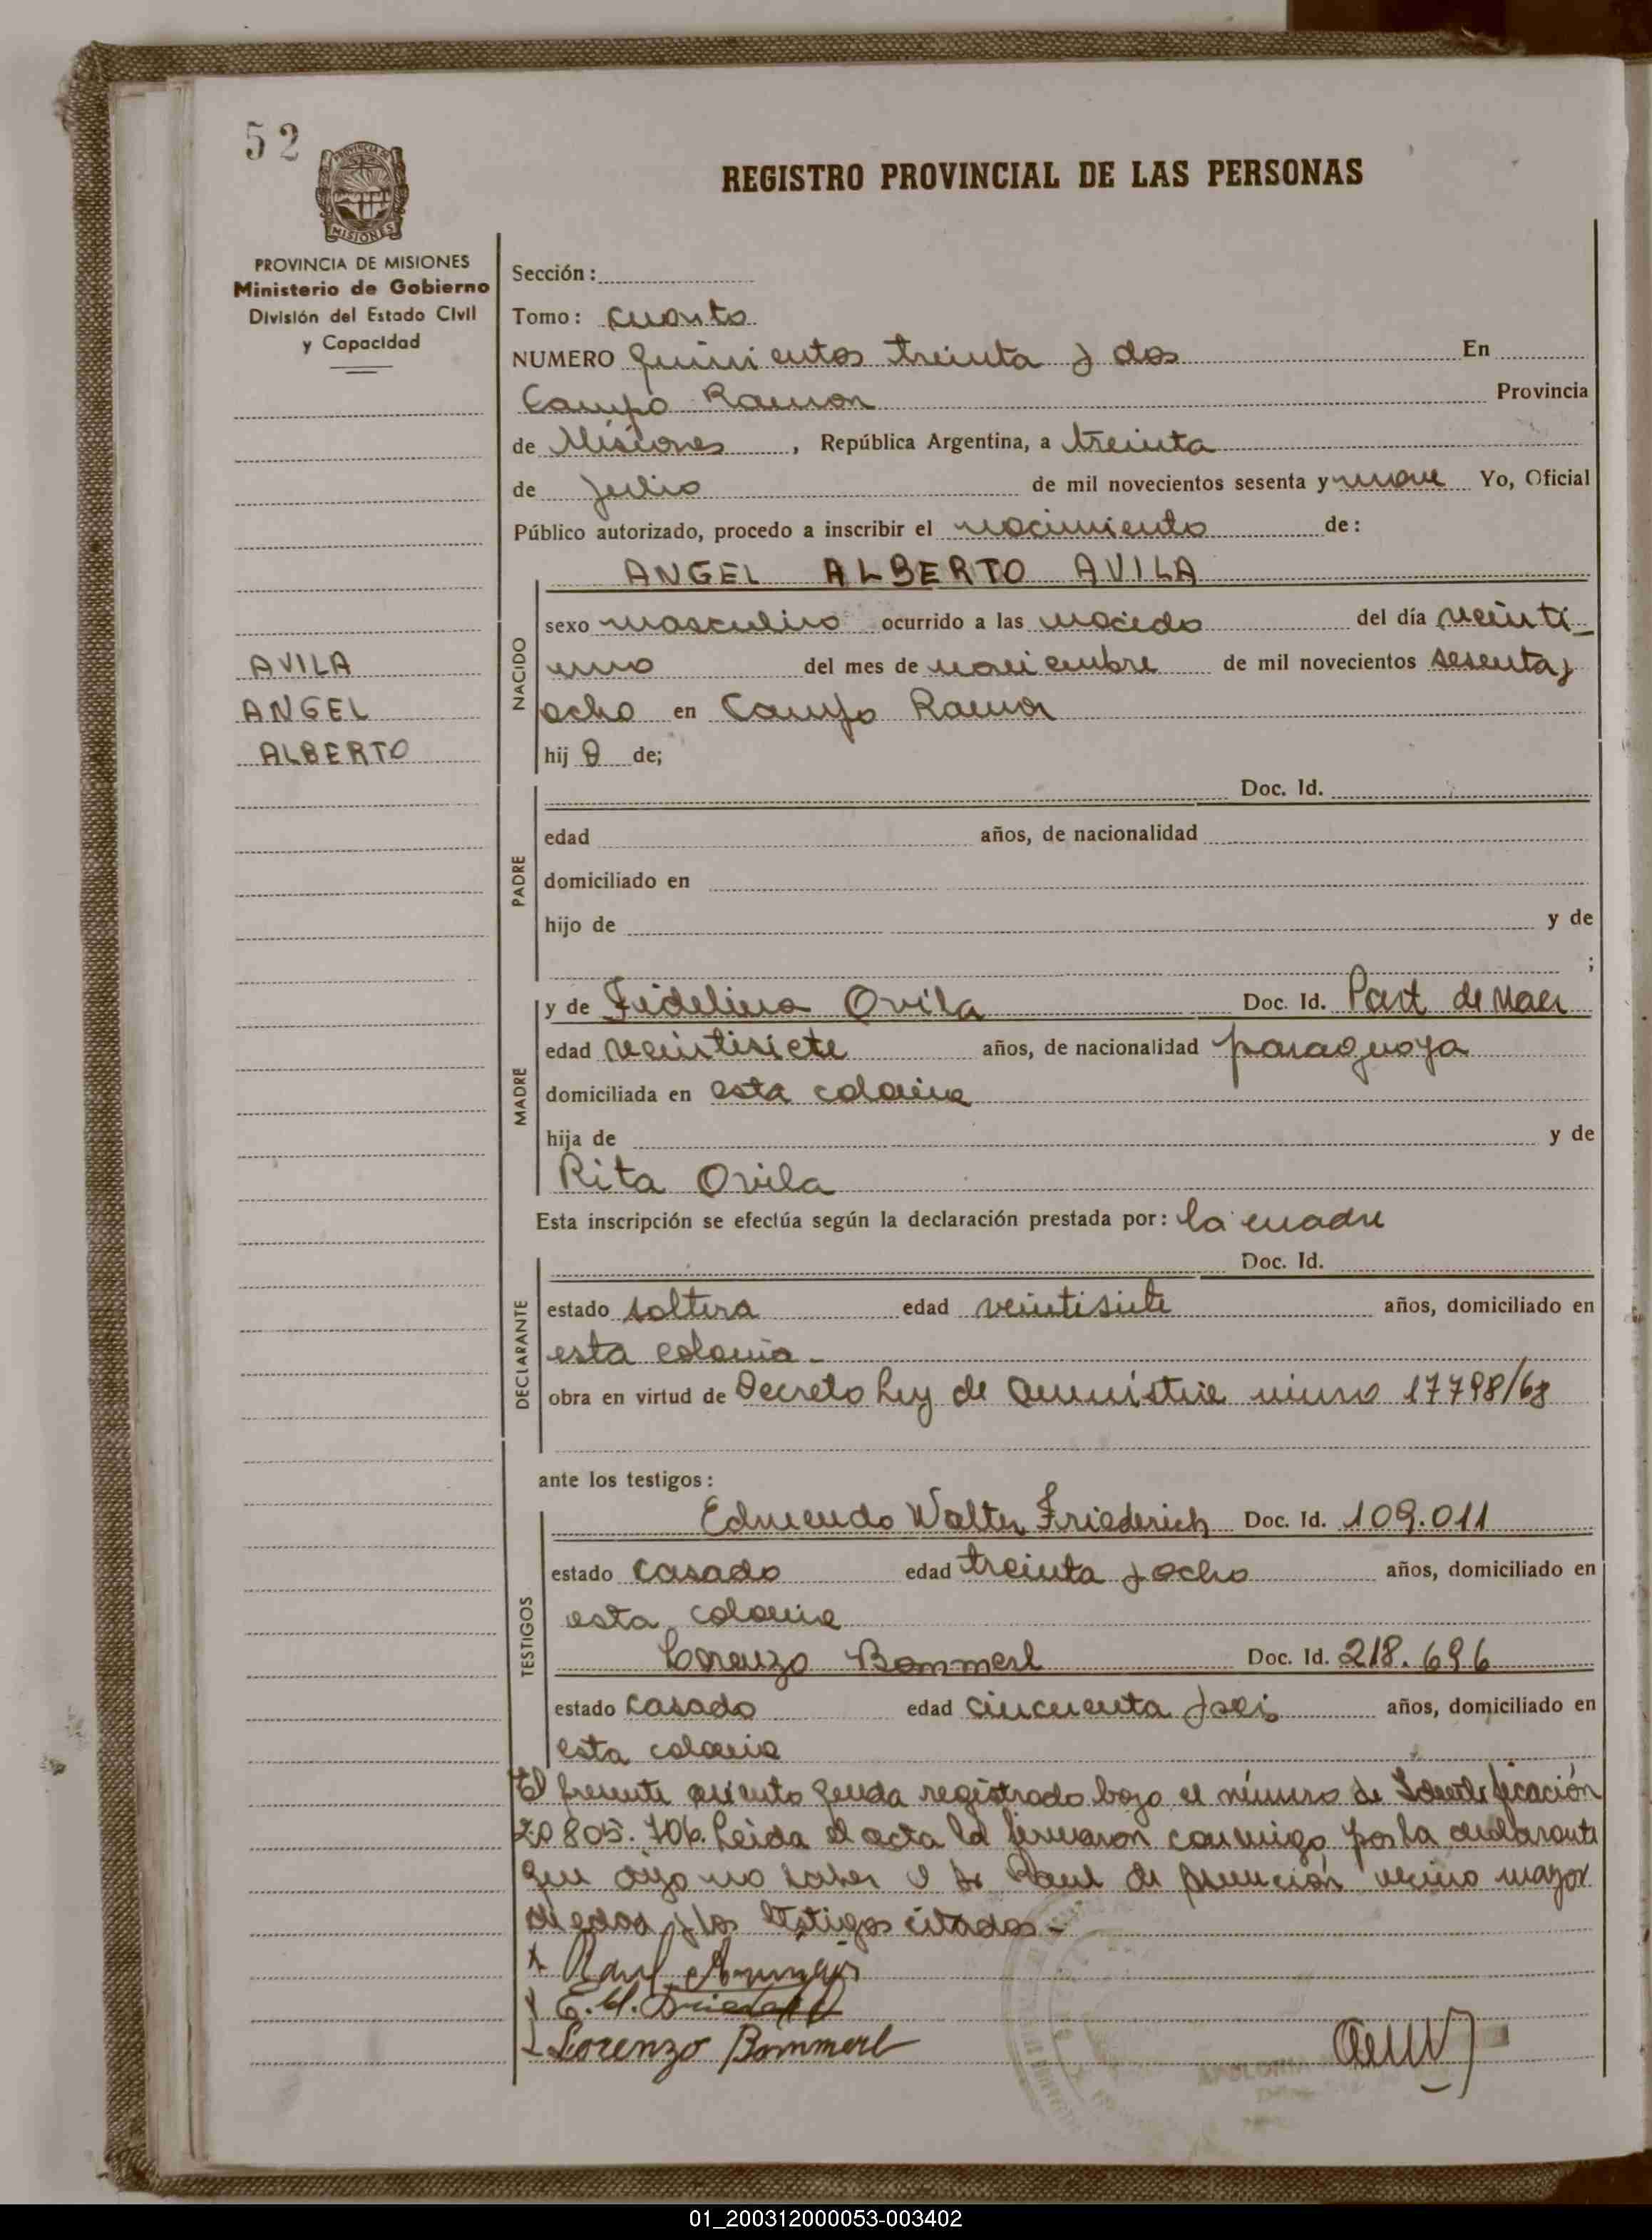 52
REGISTRO PROVINCIAL DE LAS PERSONAS
PROVINCIA DE MISIONES
Ministerio de Gobierno
División del Estado Civil
y Capacidad
Sección:
Tomo: cuarto
NUMERO quinientos treinta y dos En
Campo Ramon Provincia
de Misiones, República Argentina, a treinta
de julio de mil novecientos sesenta y nueve Yo, Oficial
Público autorizado, procedo a inscribir el nacimiento de:
ANGEL ALBERTO AVILA
sexo masculino ocurrido a las del día veinti_
uno del mes de noviembre de mil novecientos sesenta y
ocho en Campo Ramon
hij o de;
NACIDO
AVILA
ANGEL
ALBERTO
Doc. Id.
edad años, de nacionalidad
domiciliado en
hijo de y de
;
PADRE
y de Fidelina Avila Doc. Id. Part de Nac
edad veintisiete años, de nacionalidad paraguaya
domiciliada en esta colonia
hija de y de
Rita Avila
MADRE
Esta inscripción se efectúa según la declaración prestada por: la madre
Doc. Id.
estado soltera edad veintisiete años, domiciliado en
esta colonia -
obra en virtud de Decreto Ley de amnistia numero 17798/68
DECLARANTE
ante los testigos:
Edmundo Walter Friederich Doc. Id. 109.011
estado casado edad treinta y ocho años, domiciliado en
esta colonia
Lorenzo Bommerl Doc. Id. 218.696
estado casado edad cincuenta y seis años, domiciliado en
esta colonia
TESTIGOS
El presente asiento queda registrado bajo el número de Identificación
20805.706. Leida el acta la firmaron conmigo por la declarante
que dijo no saber el Sr Raul vecino mayor
de edad y los testigos citados -
Raul
Lorenzo Bommerl
01_200312000053-003402